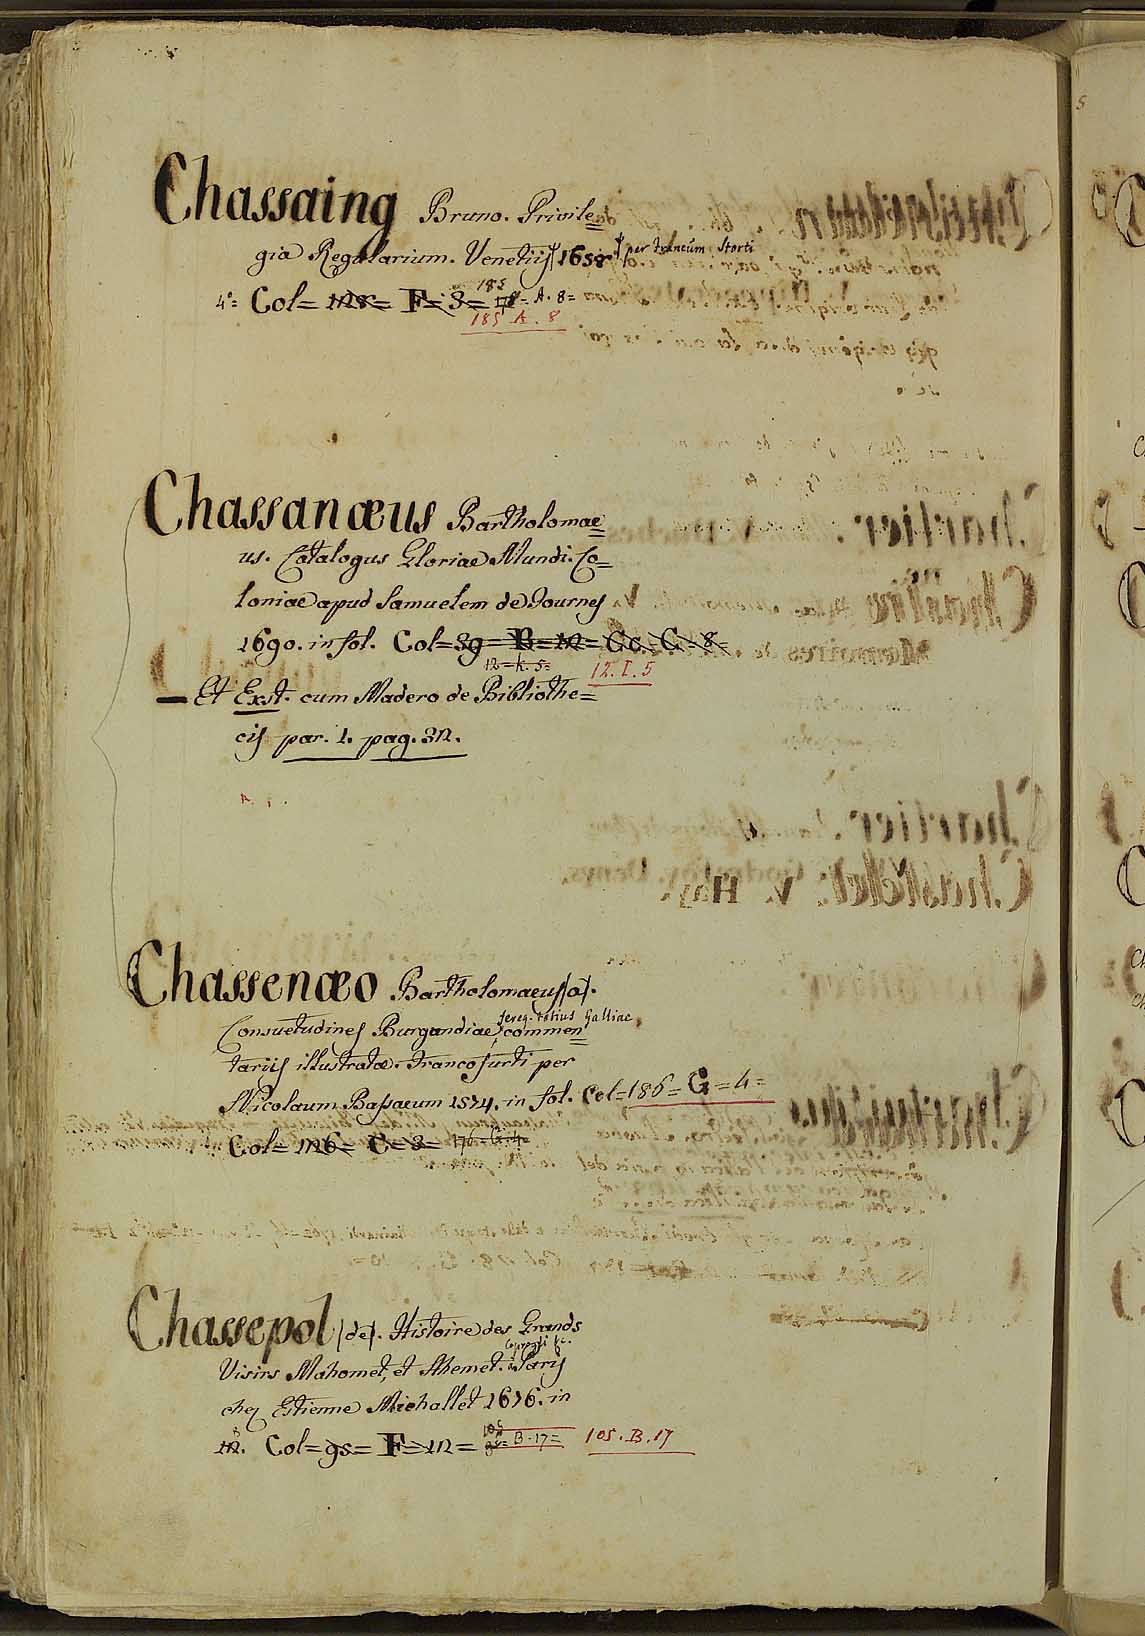 Chassaing Bruno. Privile=
gia Regularium. Venetiis 1658 per Francum Storti
185
4°= Col= 128= F= 3= A. 8=
185 A. 8
Chassanæus Bartholomae=
us. Catalogus Gloriae Mundi. Co=
loniae apud Samuelem de Tournes
1690. in fol. Col= 39= B= 12= Cc. C= 8=
12= k. 5= 12. I. 5
— Et Exst. cum Madero de Bibliothe=
cis par. 1. pag. 32.
Chassenæo Bartholomaeus (a).
Consuetudines Burgundiae, fereq. totius Galliae, commen=
tariis illustratæ. Francofurti per
Nicolaum Bassaeum 1574. in fol. Col= 186= G= 4=
Col= 126= C= 3= 176= G. 4=
Chassepol (de). Histoire des Grands
Visirs Mahomet, et Ahemet. Coprogli &c. à Paris
chez Estienne Michallet 1676. in
12. Col= 95= F= 12= B. 17= 105. B. 17